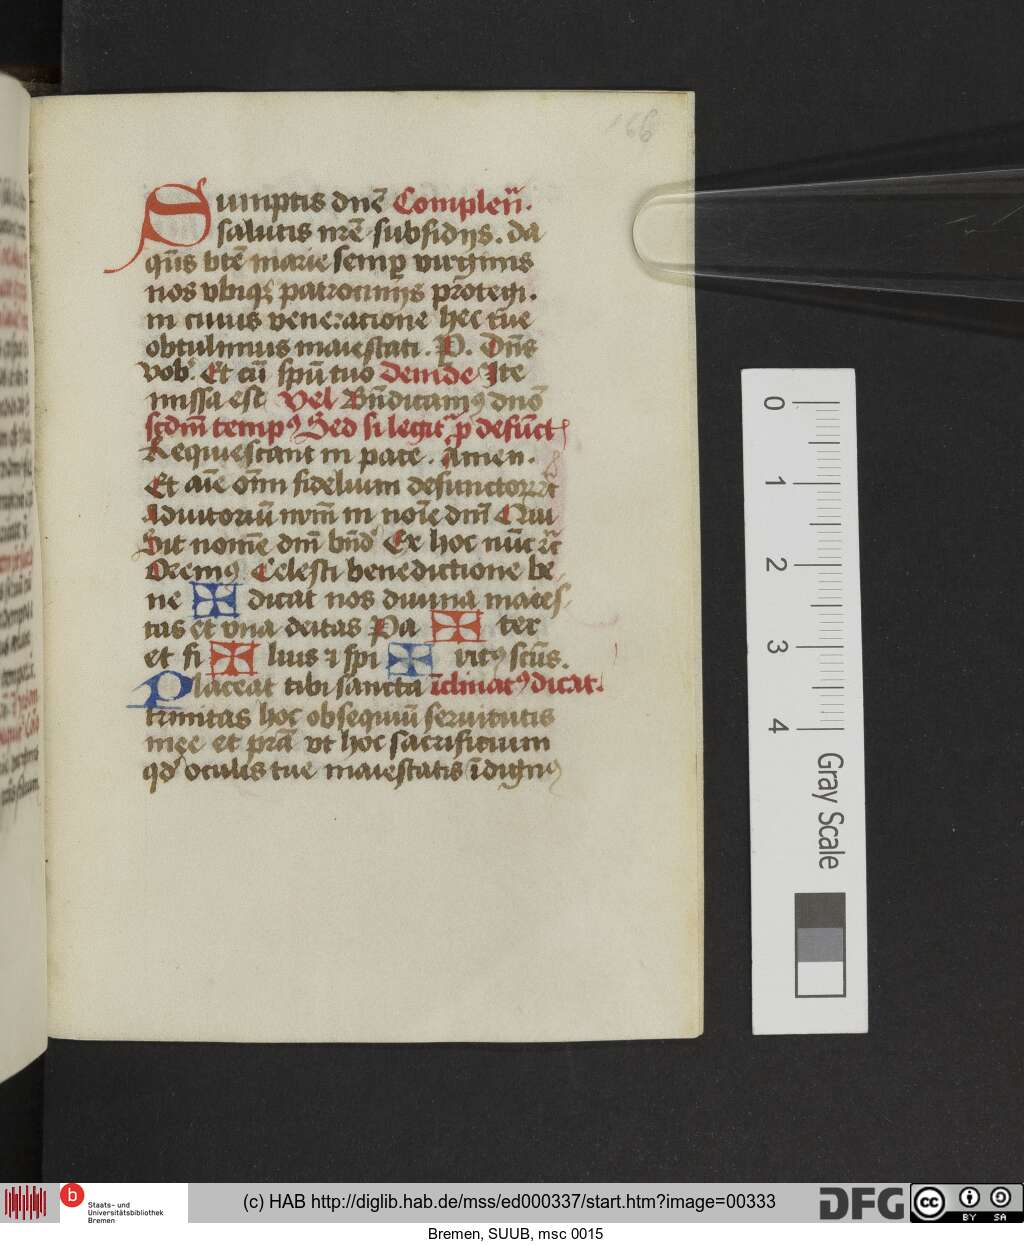 166
Sumptis dnē Complen̄.
salutis nr̄e subsidijs. da
qs̄ bt̄e marie semꝑ virginis
nos vbiqꝫ patrocinijs ꝓtegi.
in cuius veneratione hec tue
obtulimus maiestati. P. Dn̄s
vob. Et cū spū tuo Deinde Ite
missa est Vel Bn̄dicamꝰ dnō
scdm̄ tempꝰ Sed si legit̄ ꝓ defunct
Requiescant in pace. Amen.
Et aīe om̄ fidelium defunctoꝝ
Adiutoriū nr̄m in noīe dn̄i Qui
Sit nomē dn̄i bn̄d Ex hoc nūc
Oremꝰ Celesti benedictione be
ne dicat nos diuina maies
tas et vna deitas Pa ter
et fi lius ⁊ spi ritꝰ scūs.
Placeat tibi sancta īclinatꝰ dicat.
trinitas hoc obsequiū seruitutis
mee et prā vt hoc sacrificium
qd oculis tue maiestatis īdignꝰ
0
1
2
3
4
Gray Scale
b
Staats- und
Universitätsbibliothek
Bremen
(c) HAB http://diglib.hab.de/mss/ed000337/start.htm?image=00333
DFG
cc
BY SA
Bremen, SUUB, msc 0015